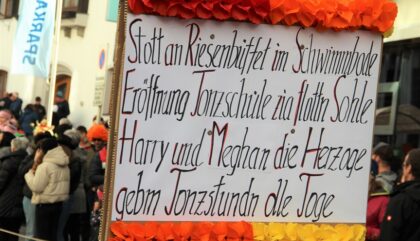 SPARKA
Stott an Riesenbüffet im Schwimmbade
Eröffnung Tonzschule zia flottn Sohle
Harry und Meghan die Herzoge
gebm Tonzstundn olle Toge